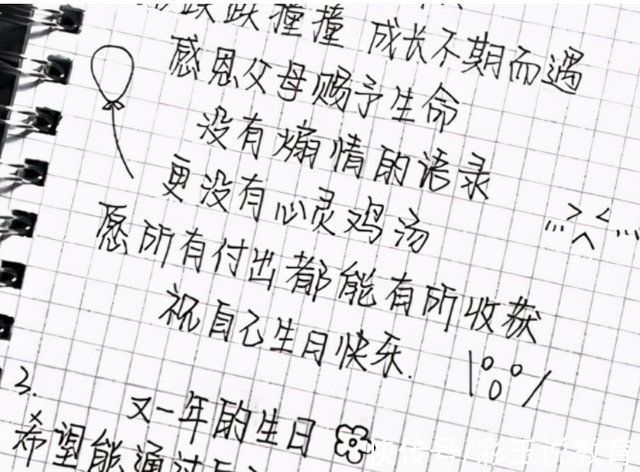 跌跌撞撞 成长不期而遇
感恩父母赐予生命
没有煽情的语录
更没有心灵鸡汤
愿所有付出都能有所收获
祝自己生日快乐.
3.
又一年的生日
希望能通过
快传号/彩玉说教育